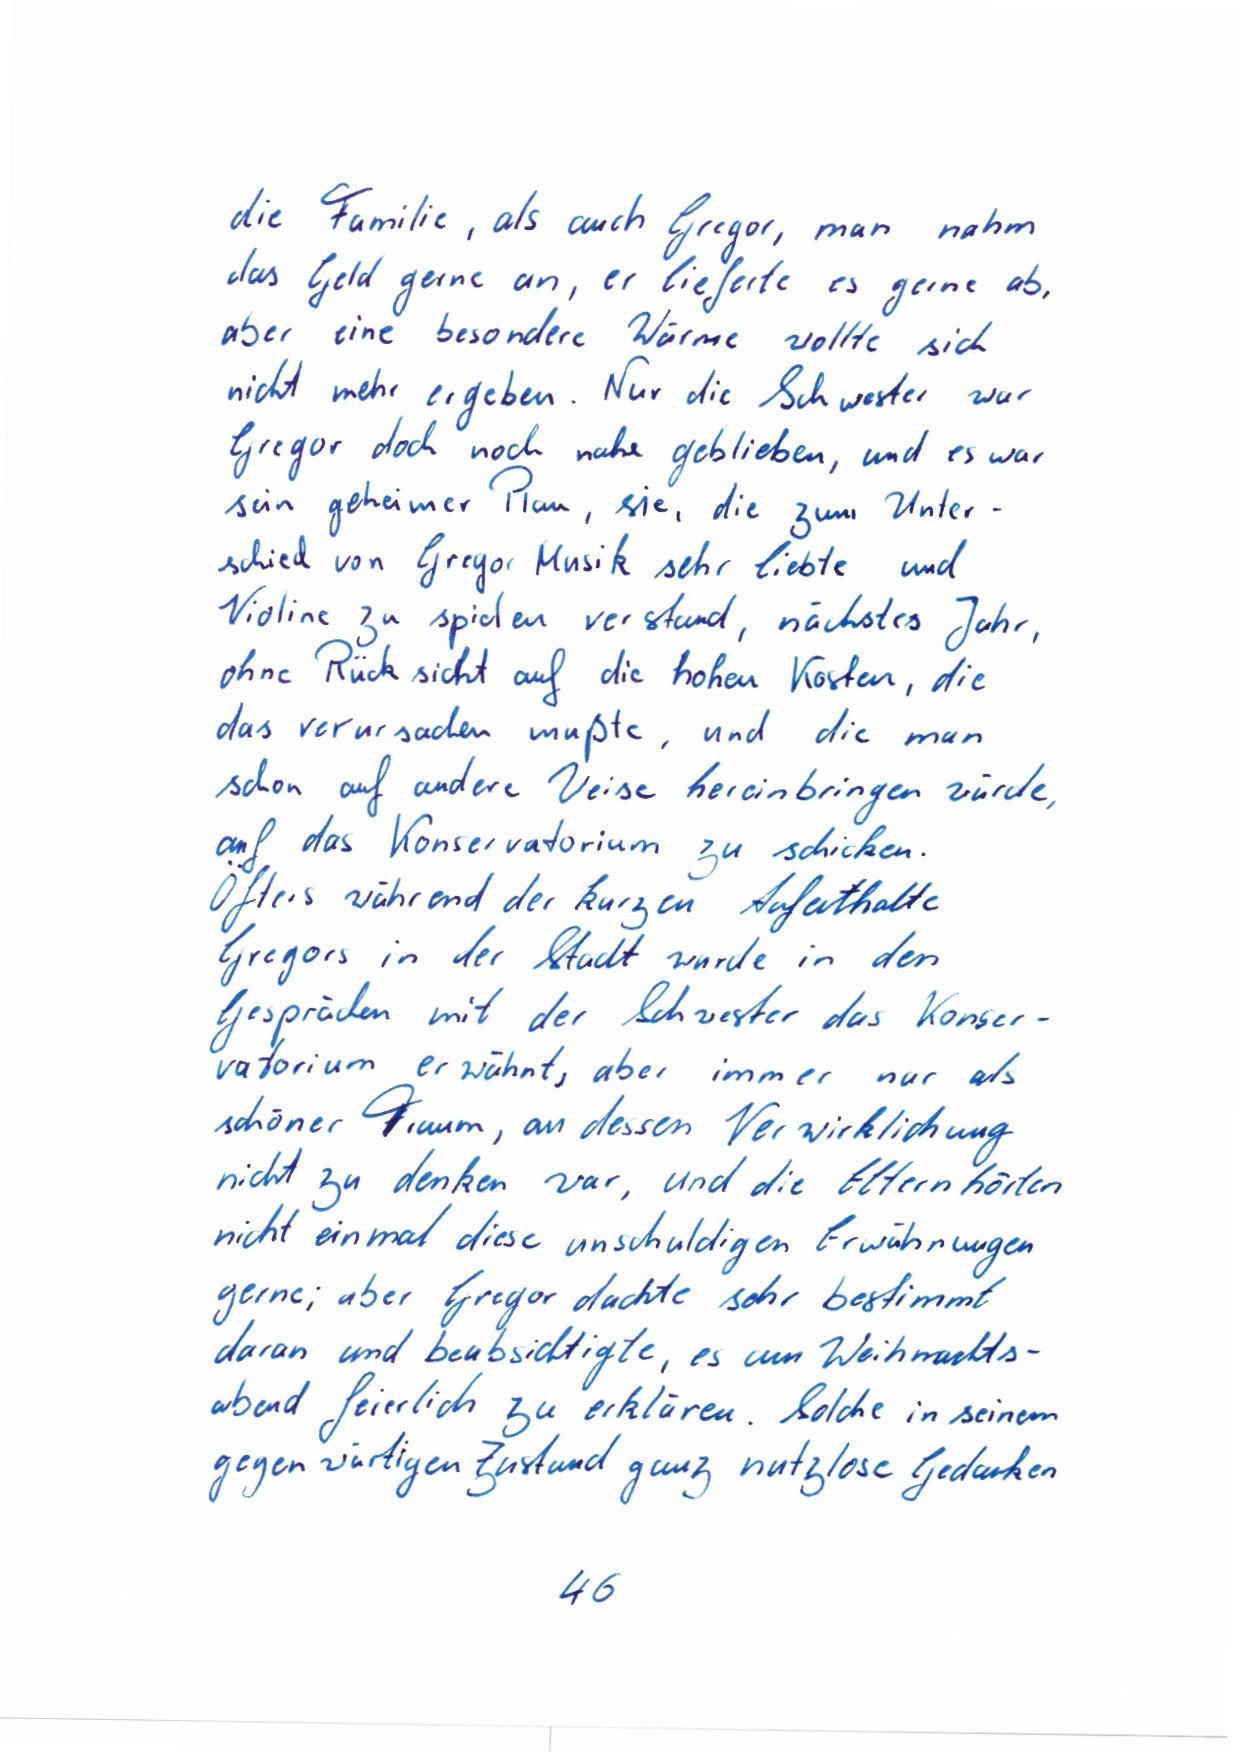 die Familie, als auch Gregor, man nahm
das Geld gerne an, er lieferte es gerne ab,
aber eine besondere Wärme wollte sich
nicht mehr ergeben. Nur die Schwester war
Gregor doch noch nahe geblieben, und es war
sein geheimer Plan, sie, die zum Unter-
schied von Gregor Musik sehr liebte und
Violine zu spielen verstand, nächstes Jahr,
ohne Rücksicht auf die hohen Kosten, die
das verursachen mußte, und die man
schon auf andere Weise hereinbringen würde,
auf das Konservatorium zu schicken.
Öfters während der kurzen Aufenthalte
Gregors in der Stadt wurde in den
Gesprächen mit der Schwester das Konser-
vatorium erwähnt, aber immer nur als
schöner Traum, an dessen Verwirklichung
nicht zu denken war, und die Eltern hörten
nicht einmal diese unschuldigen Erwähnungen
gerne; aber Gregor dachte sehr bestimmt
daran und beabsichtigte, es am Weihnachts-
abend feierlich zu erklären. Solche in seinem
gegenwärtigen Zustand ganz nutzlose Gedanken
46